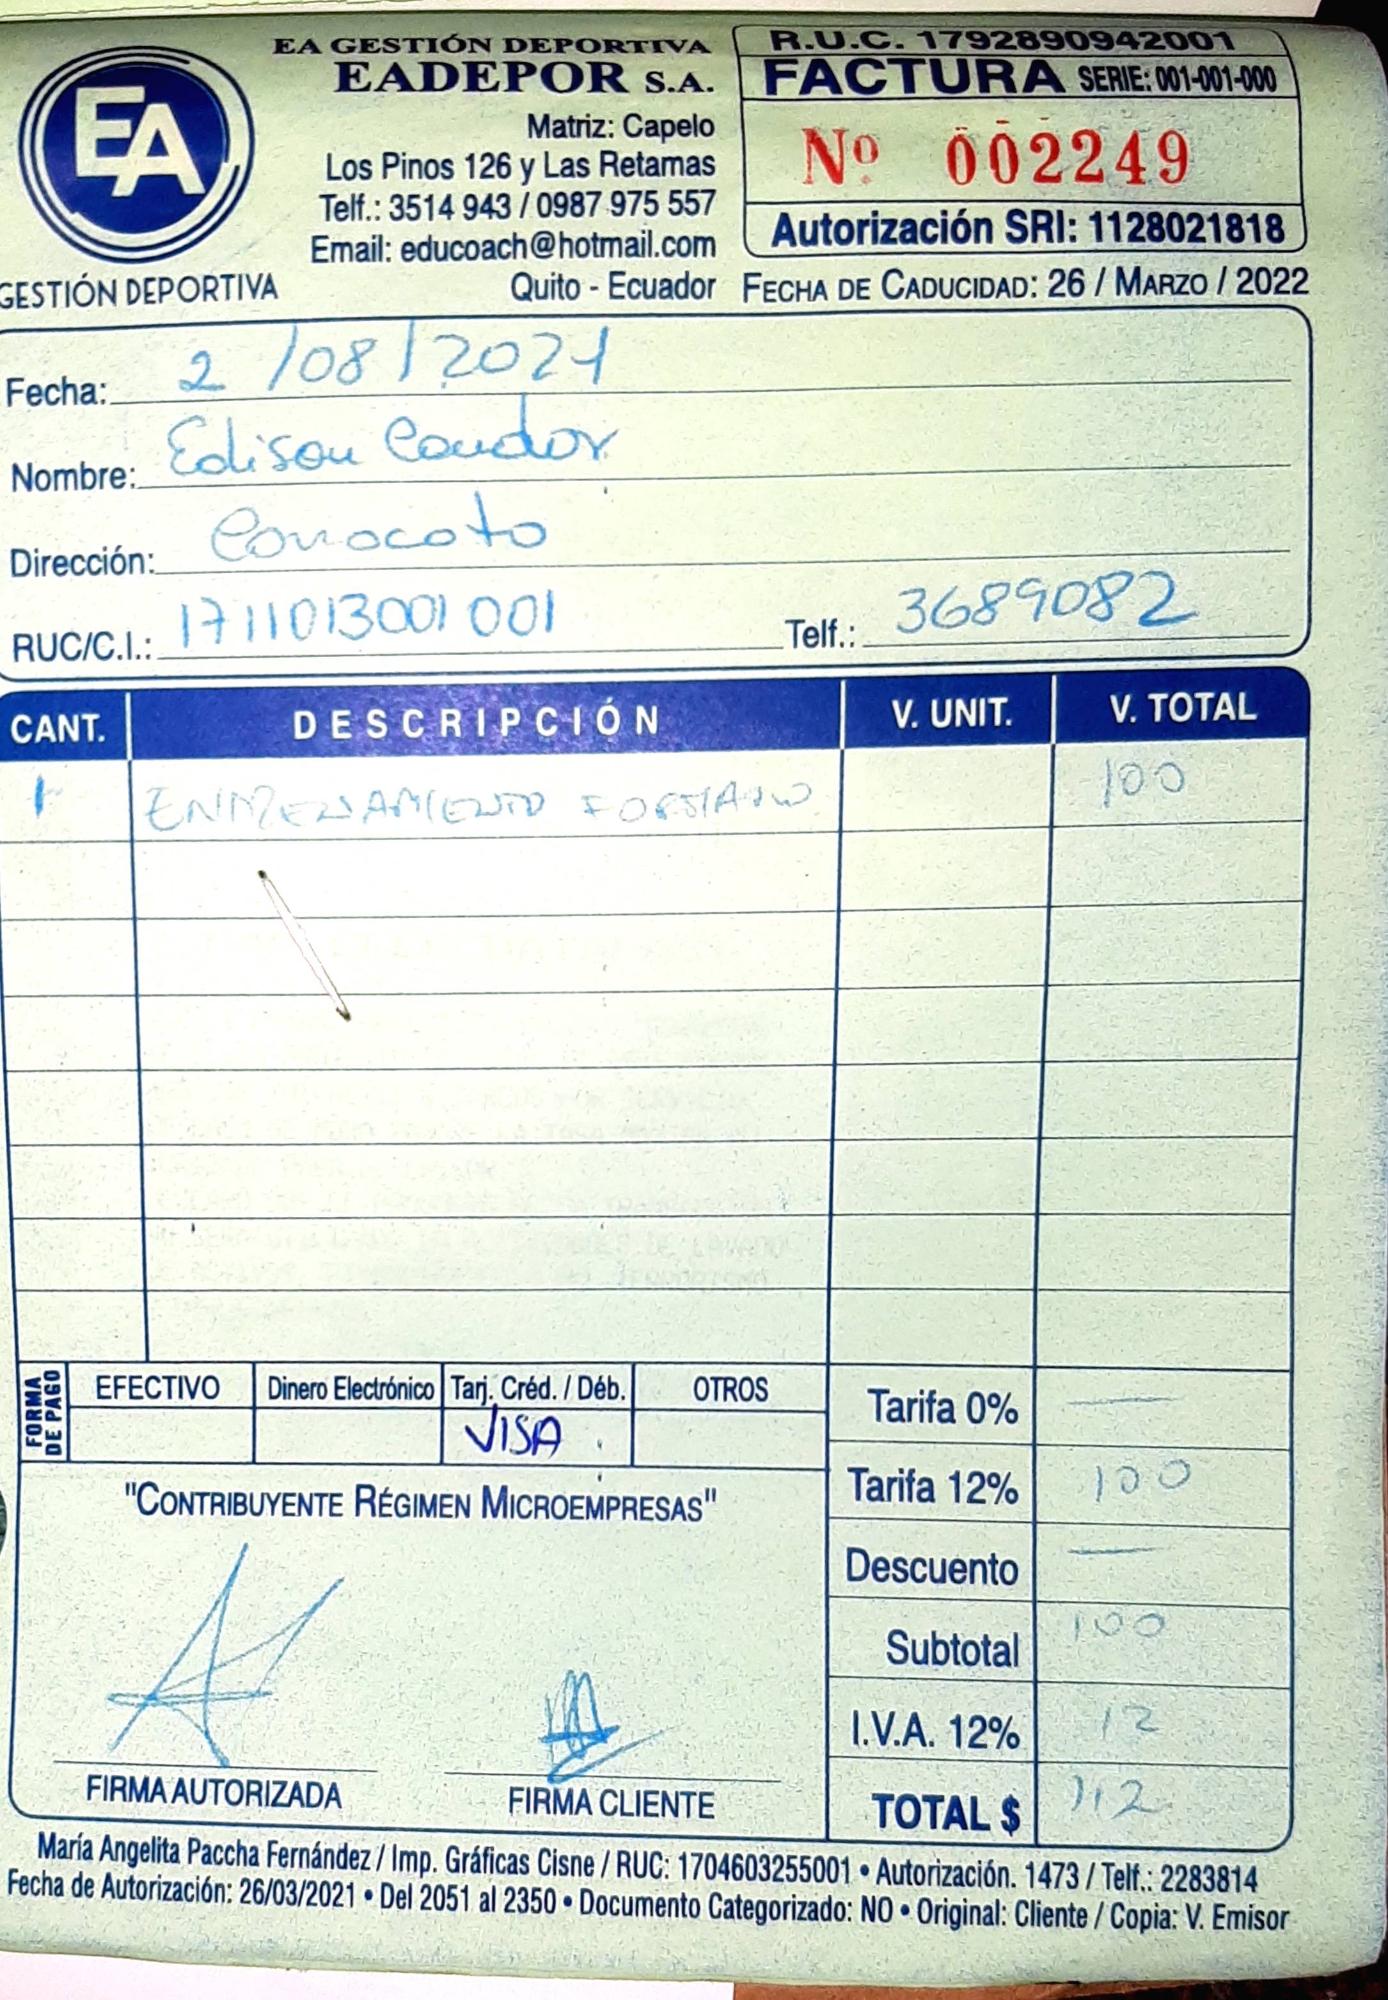 EA GESTIÓN DEPORTIVA
EADEPOR S.A.
Matriz: Capelo
Los Pinos 126 y Las Retamas
Telf.: 3514 943 / 0987 975 557
Email: educoach@hotmail.com
Quito - Ecuador
EA
GESTIÓN DEPORTIVA
R.U.C. 1792890942001
FACTURA SERIE: 001-001-000
Nº 002249
Autorización SRI: 1128021818
FECHA DE CADUCIDAD: 26 / MARZO / 2022
Fecha: 2 /08/2021
Nombre: Edison Condor
Dirección: Conocoto
RUC/C.I.: 1711013001001 Telf.: 3689082
CANT. DESCRIPCIÓN V. UNIT. V. TOTAL
1 ENTRENAMIENTO 100
FORMA DE PAGO
EFECTIVO Dinero Electrónico Tarj. Créd. / Déb. OTROS
VISA
Tarifa 0% —
Tarifa 12% 100
Descuento —
Subtotal 100
I.V.A. 12% 12
TOTAL $ 112
"CONTRIBUYENTE RÉGIMEN MICROEMPRESAS"
FIRMA AUTORIZADA FIRMA CLIENTE
María Angelita Paccha Fernández / Imp. Gráficas Cisne / RUC: 1704603255001 • Autorización. 1473 / Telf.: 2283814
Fecha de Autorización: 26/03/2021 • Del 2051 al 2350 • Documento Categorizado: NO • Original: Cliente / Copia: V. Emisor